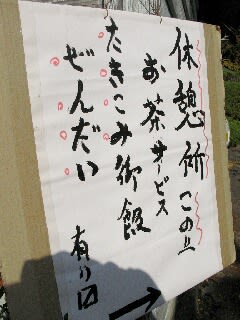 休憩所この上
お茶サービス
たきこみ御飯
ぜんだい
有り口